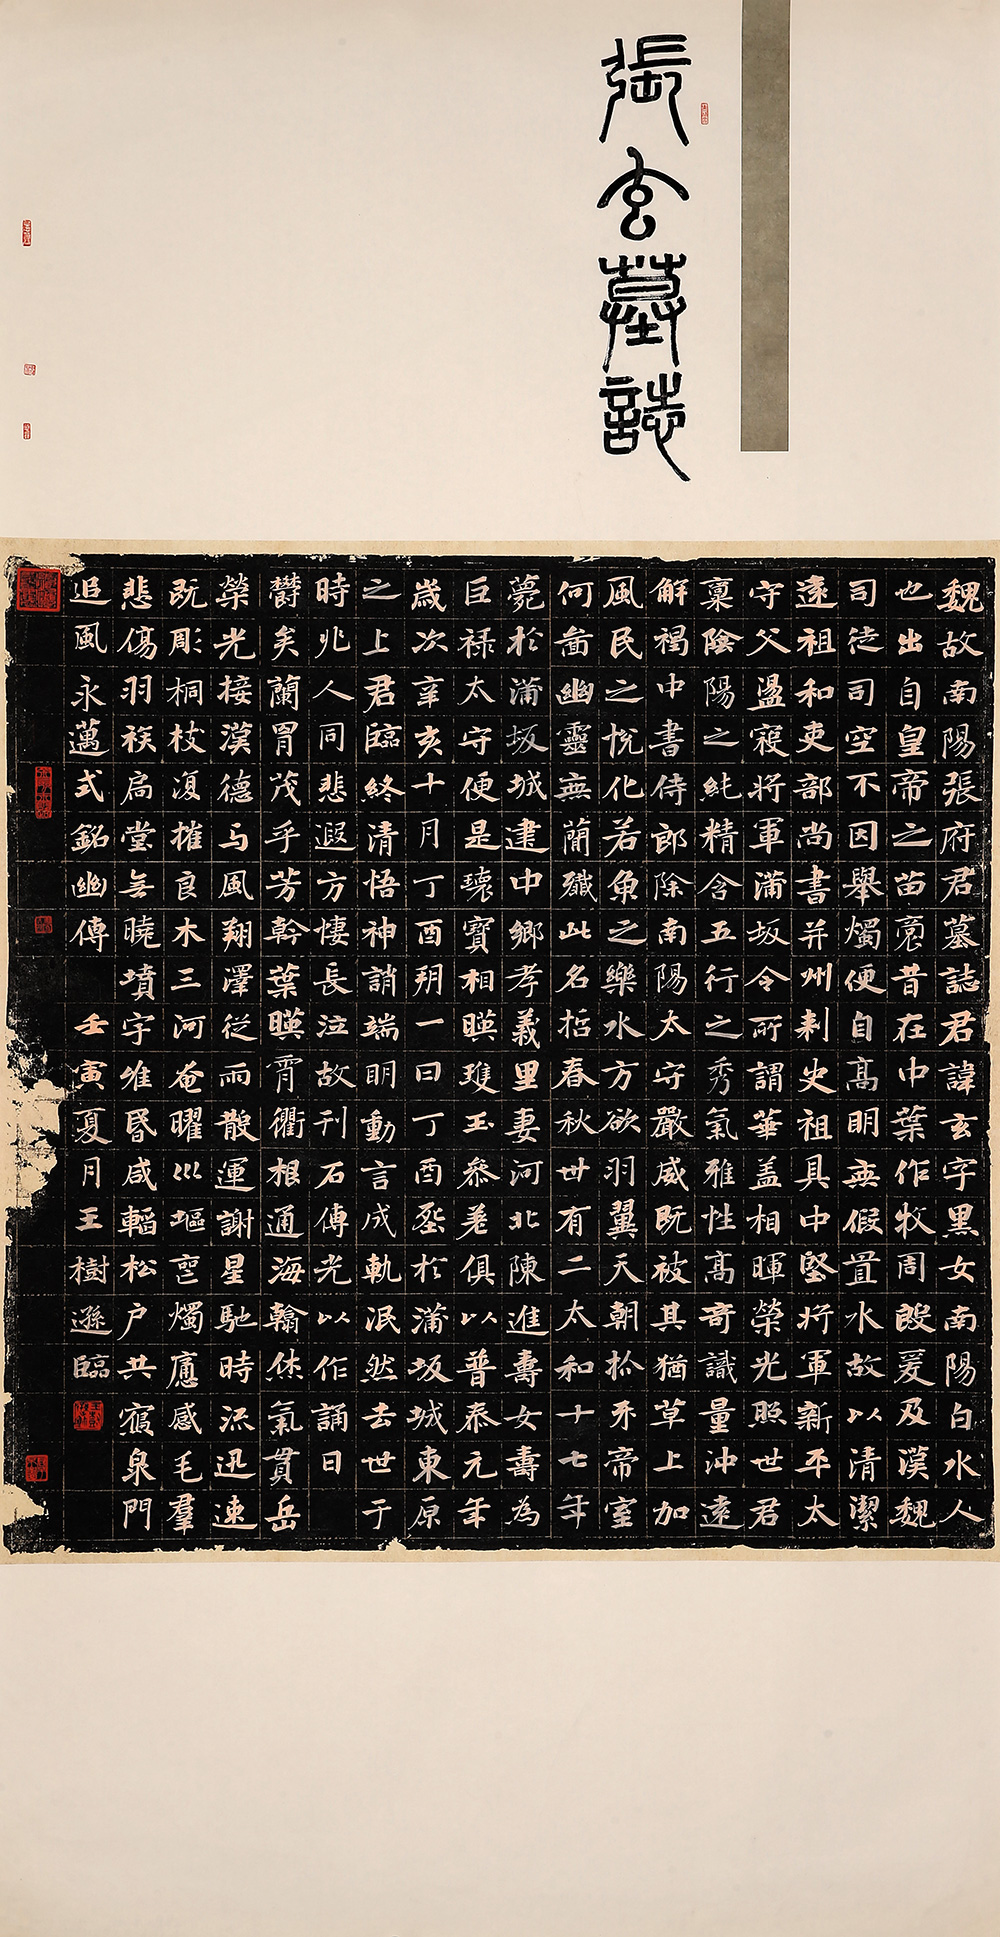 張玄墓誌
魏故南陽張府君墓誌君諱玄字黑女南陽白水人
也出自皇帝之苗裔昔在中葉作牧周殷爰及漢魏
司徒司空不因舉燭便自高明無假置水故以清潔
遠祖和吏部尚書并州刾史祖具中堅將軍新平太
守父盪寇將軍蒲坂令所謂華盖相暉榮光照世君
稟陰陽之純精含五行之秀氣雅性高奇識量沖遠
解褐中書侍郎除南陽太守嚴威既被其猶草上加
風民之悅化若魚之樂水方欲羽翼天朝抓牙帝室
何啚幽靈無簡殲此名哲春秋卅有二太和十七年
薨於蒲坂城建中鄉孝義里妻河北陳進壽女壽為
巨祿太守便是瓌寶相暎瓊玉參差俱以普泰元年
歲次辛亥十月丁酉朔一日丁酉塟於蒲坂城東原
之上君臨終清悟神誚端明動言成軌泯然去世于
時兆人同悲遐方悽長泣故刊石傳光以作誦曰
欝矣蘭胄茂乎芳幹葉暎霄衢根通海翰烋氣貫岳
榮光接漢德与風翔澤從雨散運謝星馳時流迅速
既彫桐枝復摧良木三河奄曜巛塸喪燭應感毛羣
悲傷羽族扃堂無曉墳宇唯昏咸韜松户共寢泉門
追風永邁式銘幽傳 壬寅夏月王樹遜臨